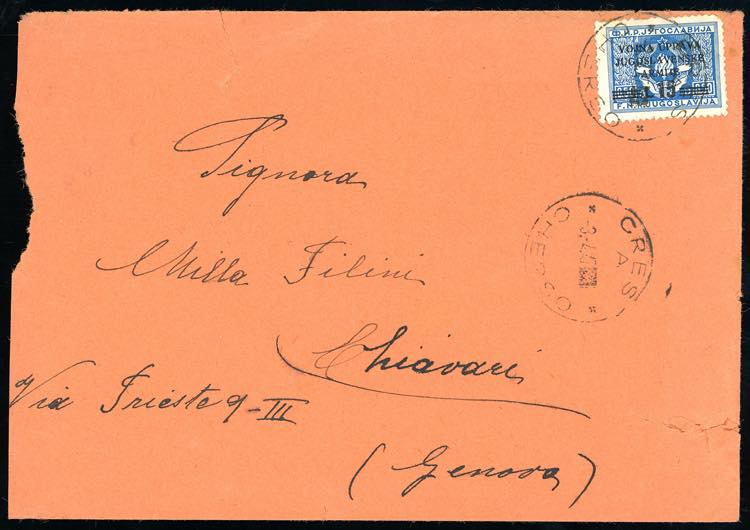 Ф.Н.Р. ЈУГОСЛАВИЈА
VOJNA UPRAVA
JUGOSLAVENSKE
ARMIJE
L 15
F.N.R. JUGOSLAVIJA
CRES
A
CHERSO
Signora
Milla Filini
Chiavari
Via Trieste 9-III
(Genova)